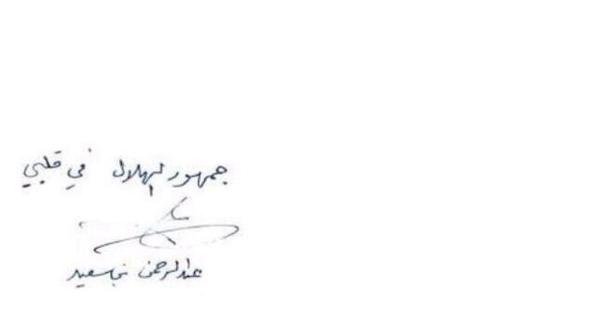 جمهور الهلال في قلبي
عبدالرحمن بن سعيد